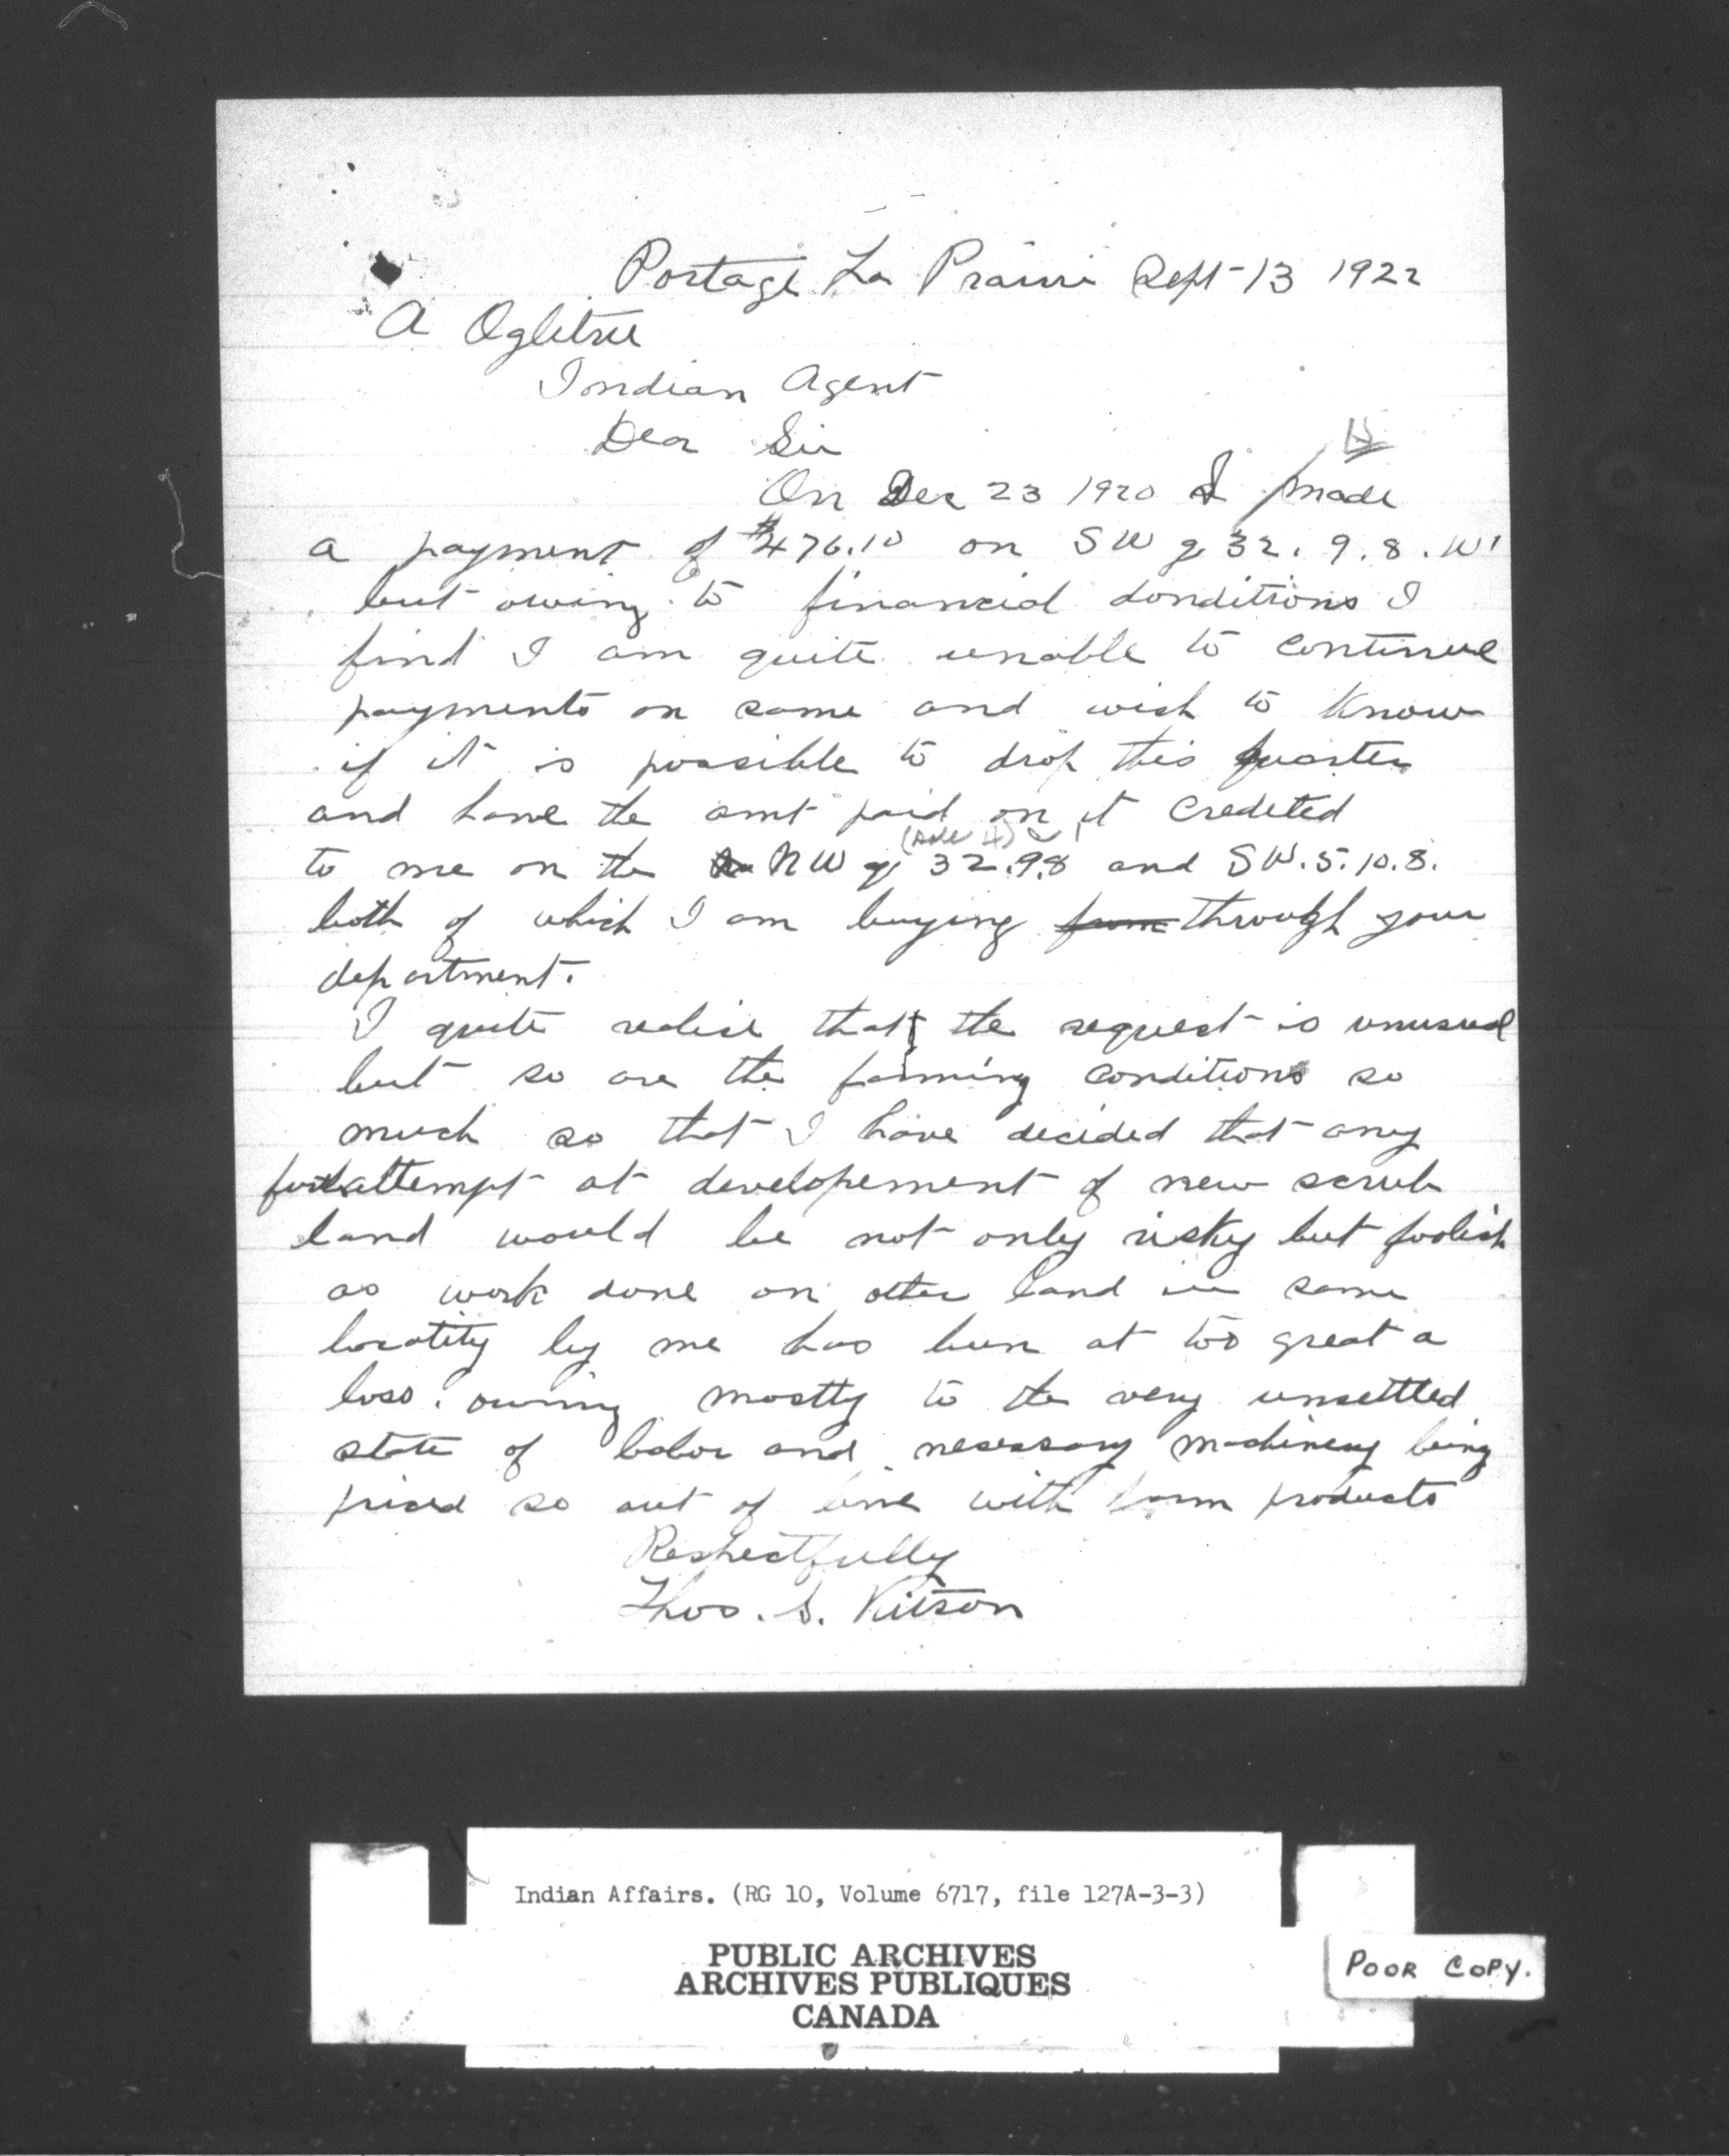 Portage La Prairie Sept-13 1922
A Ogletree
Indian Agent
Dear Sir
On Dec 23 1920 I made
a payment of $476.10 on SW of 32. 9. 8. W1
but owing to financial donditions I
find I am quite unable to continue
payments on same and wish to know
if it is possible to drop this quarter
and have the amt paid on it credeted
to me on the NW of 32.9.8 and SW. 5. 10. 8.
both of which I am buying from through your
department.
I quite realise that the request is unusual
but so are the farming conditions so
much so that I have decided that any
attempt at developement of new scrub
land would be not only risky but foolish
as work done on other land in same
locatity by me has been at too great a
loss. owing mostly to the very unsettled
state of labor and necessary machinery being
priced so out of line with farm products
Respectfully
Thos. S. Kitson
Indian Affairs. (RG 10, Volume 6717, file 127A-3-3)
PUBLIC ARCHIVES
ARCHIVES PUBLIQUES
CANADA
POOR COPY.